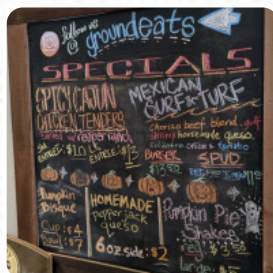 follow us
@groundeats
SPECIALS
SPICY CAJUN
CHICKEN TENDERS
MEXICAN
SURF & TURF
chorizo beef blend, gulf
shrimp, homemade queso,
onion & tomato
BURGER SPUD
$13.50
ENTREE: $13
Pumpkin
Bisque
Cup: $4
Bowl: $7
HOMEMADE
pepper jack
queso
6oz side: $2
Pumpkin Pie
Shakes
reg